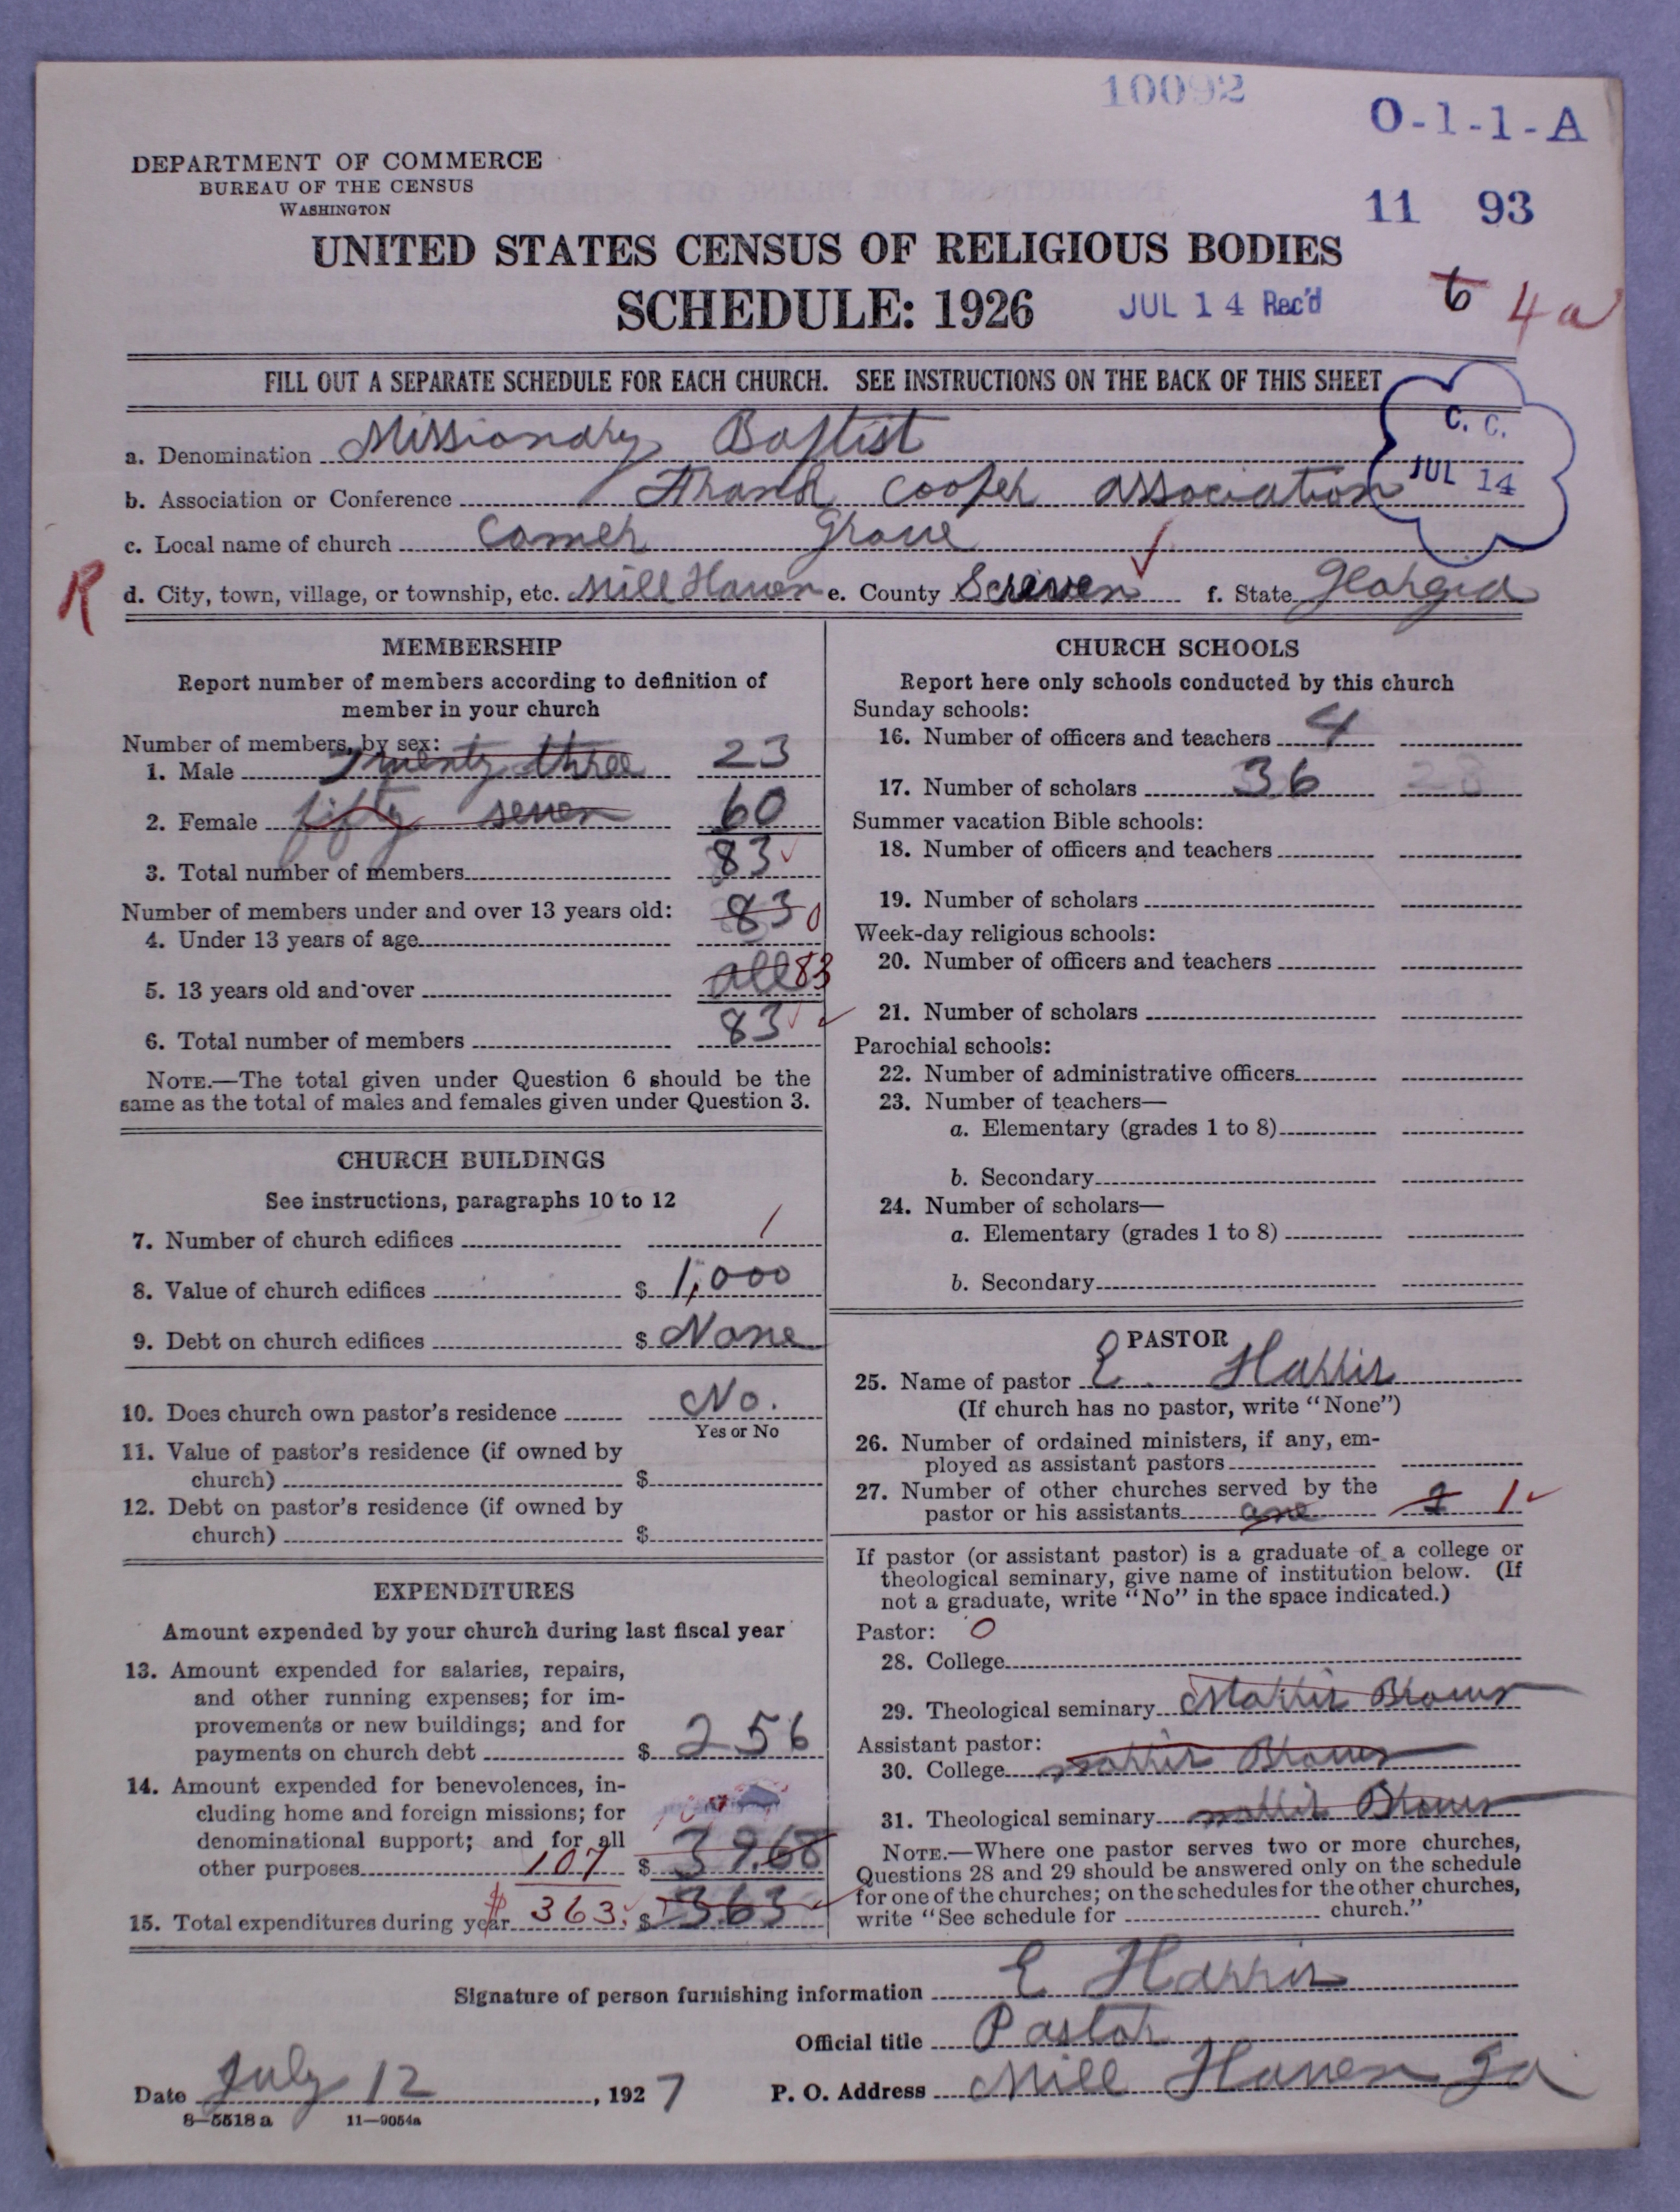 10092
O-1-1-A
DEPARTMENT OF COMMERCE
BUREAU OF THE CENSUS
WASHINGTON
11 93
UNITED STATES CENSUS OF RELIGIOUS BODIES
SCHEDULE: 1926
JUL 14 Rec'd
6 4a
FILL OUT A SEPARATE SCHEDULE FOR EACH CHURCH. SEE INSTRUCTIONS ON THE BACK OF THIS SHEET
C. C.
JUL 14
a. Denomination Missionary Baptist
b. Association or Conference Frank Cooper association
c. Local name of church Comer Grove
R
d. City, town, village, or township, etc. Mill Haven e. County Screven f. State Georgia
MEMBERSHIP
Report number of members according to definition of
member in your church
Number of members, by sex:
1. Male Twenty three 23
2. Female fifty seven 60
3. Total number of members 83
Number of members under and over 13 years old: 83
4. Under 13 years of age 0
5. 13 years old and over all 83
6. Total number of members 83
NOTE.—The total given under Question 6 should be the
same as the total of males and females given under Question 3.
CHURCH BUILDINGS
See instructions, paragraphs 10 to 12
7. Number of church edifices 1
8. Value of church edifices $ 1,000
9. Debt on church edifices $ None
10. Does church own pastor's residence No.
Yes or No
11. Value of pastor's residence (if owned by
church) $
12. Debt on pastor's residence (if owned by
church) $
EXPENDITURES
Amount expended by your church during last fiscal year
13. Amount expended for salaries, repairs,
and other running expenses; for im-
provements or new buildings; and for
payments on church debt $ 256
14. Amount expended for benevolences, in-
cluding home and foreign missions; for
denominational support; and for all
other purposes 107 $ 39.68
15. Total expenditures during year $ 363. $ 363
CHURCH SCHOOLS
Report here only schools conducted by this church
Sunday schools:
16. Number of officers and teachers 4
17. Number of scholars 36 28
Summer vacation Bible schools:
18. Number of officers and teachers
19. Number of scholars
Week-day religious schools:
20. Number of officers and teachers
21. Number of scholars
Parochial schools:
22. Number of administrative officers
23. Number of teachers—
a. Elementary (grades 1 to 8)
b. Secondary
24. Number of scholars—
a. Elementary (grades 1 to 8)
b. Secondary
PASTOR
25. Name of pastor E. Harris
(If church has no pastor, write "None")
26. Number of ordained ministers, if any, em-
ployed as assistant pastors
27. Number of other churches served by the
pastor or his assistants one 2 1
If pastor (or assistant pastor) is a graduate of a college or
theological seminary, give name of institution below. (If
not a graduate, write "No" in the space indicated.)
Pastor: 0
28. College
29. Theological seminary Morris Brown
Assistant pastor:
30. College Morris Brown
31. Theological seminary Morris Brown
NOTE.—Where one pastor serves two or more churches,
Questions 28 and 29 should be answered only on the schedule
for one of the churches; on the schedules for the other churches,
write "See schedule for church."
Signature of person furnishing information E Harris
Official title Pastor
Date July 12, 1927 P. O. Address Mill Haven Ga
8—5518 a 11—9054a